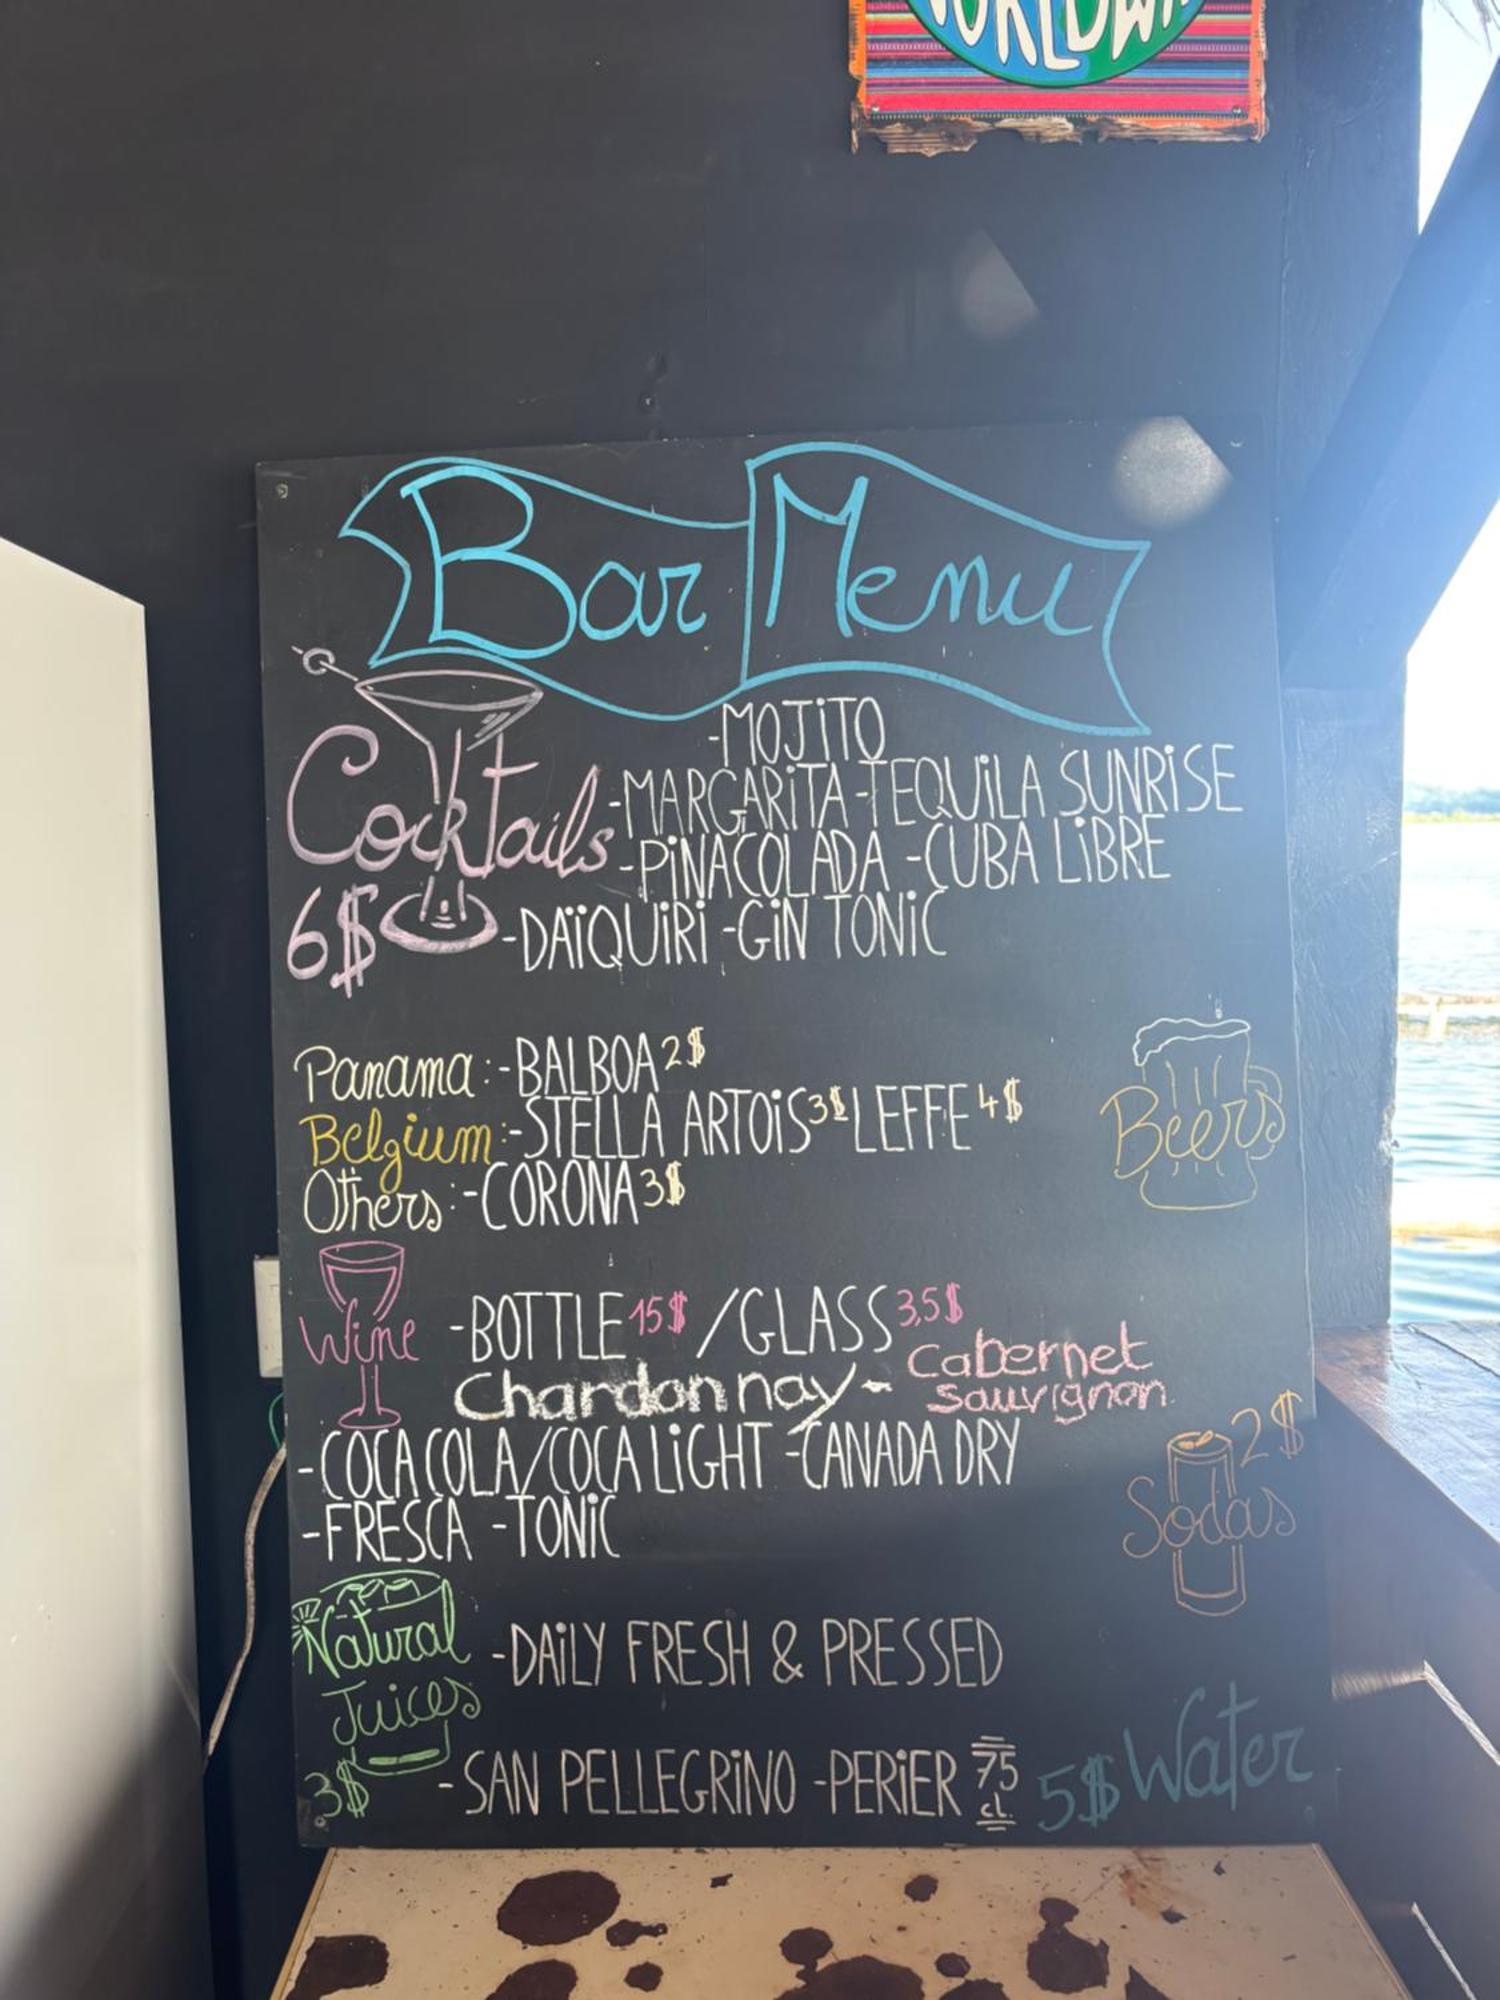 Bar Menu
Cocktails 6$
-MOJiTO
-MARGARiTA -TEQUiLA SUNRiSE
-PiNACOLADA -CUBA LiBRE
-DAÏQUiRi -GiN TONiC
Beers
Panama: -BALBOA 2$
Belgium: -STELLA ARTOiS 3$ LEFFE 4$
Others: -CORONA 3$
Wine -BOTTLE 15$ /GLASS 3,5$
Chardonnay - Cabernet sauvignon.
Sodas 2$
-COCA COLA/COCA LiGHT -CANADA DRY
-FRESCA -TONiC
Natural Juices 3$
-DAiLY FRESH & PRESSED
-SAN PELLEGRiNO -PERiER 75 cl. 5$ Water